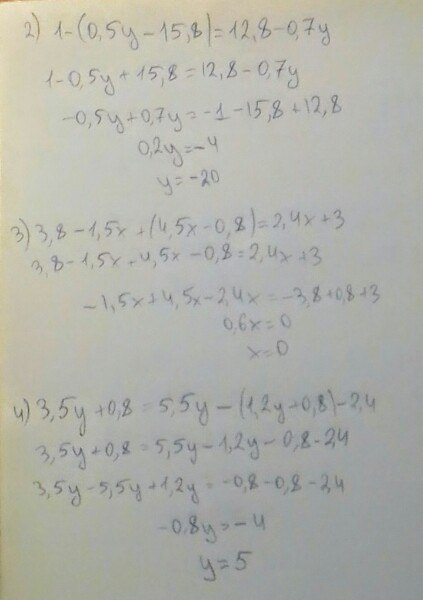 2) 1-(0,5y-15,8)=12,8-0,7y
1-0,5y+15,8=12,8-0,7y
-0,5y+0,7y=-1-15,8+12,8
0,2y=-4
y=-20
3) 3,8-1,5x+(4,5x-0,8)=2,4x+3
3,8-1,5x+4,5x-0,8=2,4x+3
-1,5x+4,5x-2,4x=-3,8+0,8+3
0,6x=0
x=0
4) 3,5y+0,8=5,5y-(1,2y+0,8)-2,4
3,5y+0,8=5,5y-1,2y-0,8-2,4
3,5y-5,5y+1,2y=-0,8-0,8-2,4
-0,8y=-4
y=5